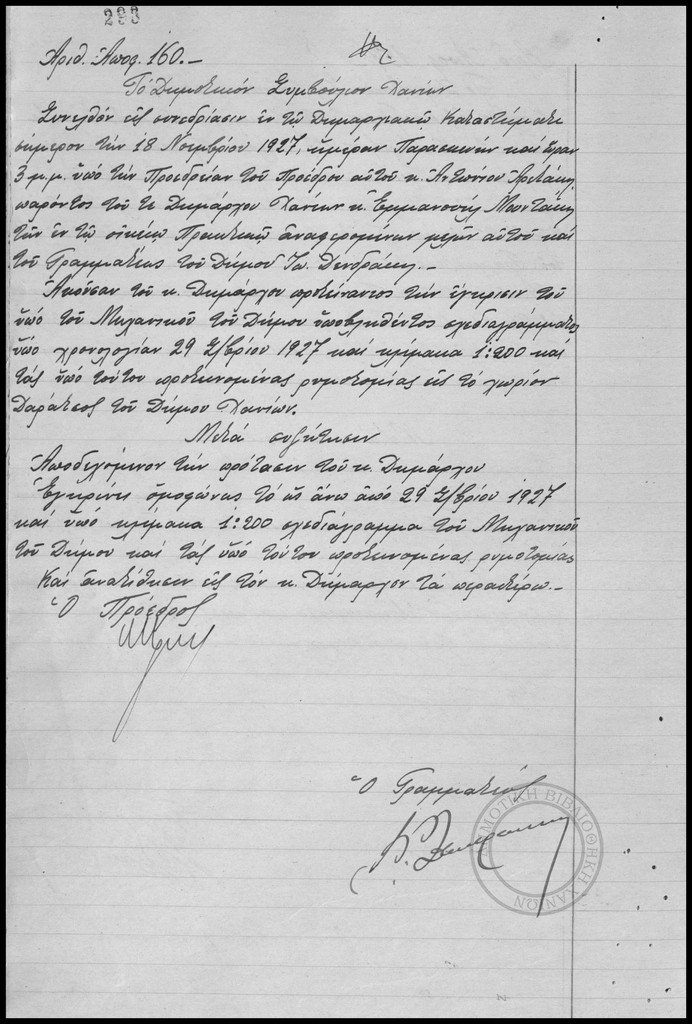 293
Ἀριθ. Ἀποφ. 160.-
Τό Δημοτικόν Συμβούλιον Χανίων
Συνελθόν εἰς συνεδρίασιν ἐν τῷ Δημαρχιακῷ Καταστήματι
σήμερον τήν 18 Νοεμβρίου 1927, ἡμέραν Παρασκευήν καί ὥραν
3 μ.μ. ὑπό τήν Προεδρείαν τοῦ Προέδρου αὐτοῦ κ. Ἀντωνίου
παρόντος τοῦ τε Δημάρχου Χανίων κ. Ἐμμανουήλ Μουντάκη
τῶν ἐν τῷ οἰκείῳ Πρακτικῷ ἀναφερομένων μελῶν αὐτοῦ καί
τοῦ Γραμματέως τοῦ Δήμου Ἰω. Δενδράκη.-
Ἀκοῦσαν τοῦ κ. Δημάρχου προτείναντος τήν ἔγκρισιν τοῦ
ὑπό τοῦ Μηχανικοῦ τοῦ Δήμου ὑποβληθέντος σχεδιαγράμματος
ὑπό χρονολογίαν 29 7/βρίου 1927 καί κλίμακα 1:200 καί
τάς ὑπό τούτου προτεινομένας ρυμοτομίας εἰς τό χωρίον
Δαράτσος τοῦ Δήμου Χανίων.
Μετά συζήτησιν
Ἀποδεχόμενον τήν πρότασιν τοῦ κ. Δημάρχου
Ἐγκρίνει ὁμοφώνως τό ὡς ἄνω ἀπό 29 7/βρίου 1927
καί ὑπό κλίμακα 1:200 σχεδιάγραμμα τοῦ Μηχανικοῦ
τοῦ Δήμου καί τάς ὑπό τούτου προτεινομένας ρυμοτομίας
Καί ἀνατίθησιν εἰς τόν κ. Δήμαρχον τά περαιτέρω.-
Ὁ Πρόεδρος
Ὁ Γραμματεύς
ΔΗΜΟΤΙΚΗ ΒΙΒΛΙΟΘΗΚΗ ΧΑΝΙΩΝ